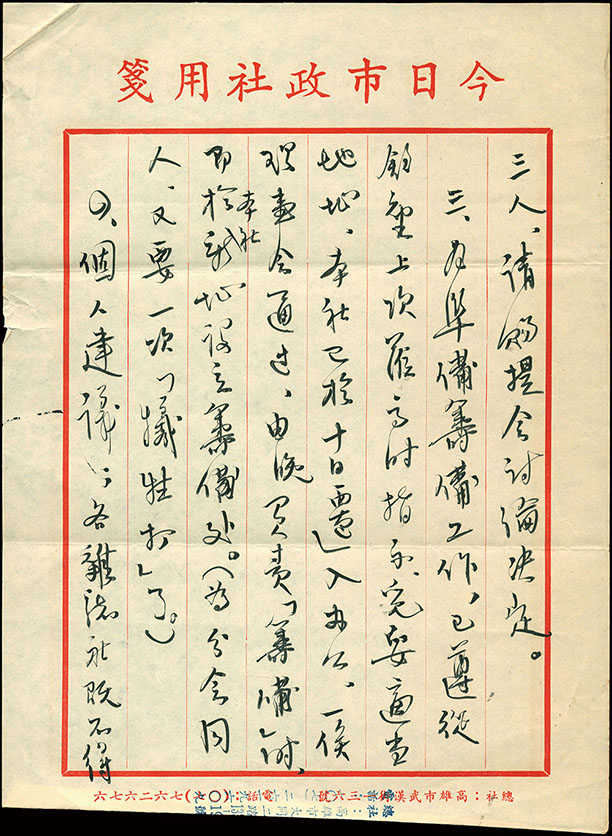 今日市政社用箋
三人、請賜提会討論決定。
三、为準備籌備工作，已遵從
鈞座上次蒞高时指示，覓妥適当
地址，本社已於十日遷入办公，一俟
理事会通过，由晚负责「籌備」时，
即於本社新址設立籌備处。（為分会同
人，又要一次「犧牲打」了。）
四、個人建議：各雜誌社既不得
總社：高雄市武漢街 三六號 電話：七六二六七六